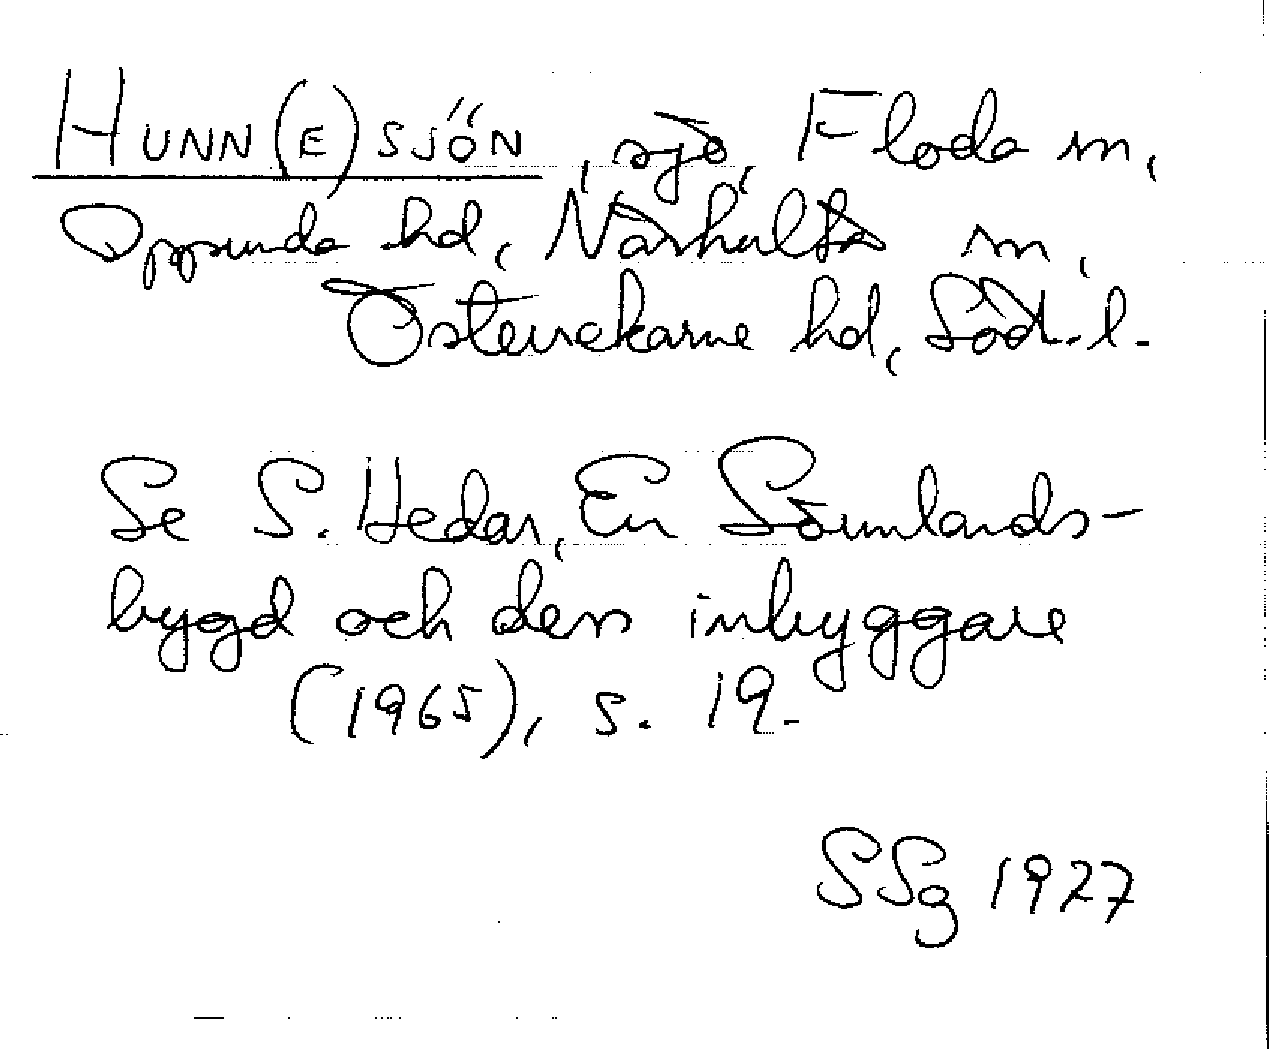 HUNN(E)SJÖN, sjö, Floda sn,
Oppunda hd, Näshulta sn,
Österrekarne hd, Söd.l.
Se S. Hedar, En Sörmlands-
bygd och dess inbyggare
(1965), s. 19.
SSg 1977